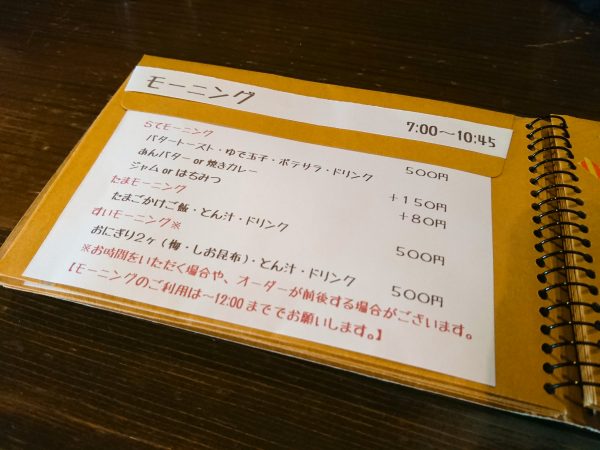 モーニング 7:00～10:45
らてモーニング
バタートースト・ゆで玉子・ポテサラ・ドリンク 500円
あんバター or 焼きカレー +150円
ジャム or はちみつ +80円
たまモーニング
たまごかけご飯・とん汁・ドリンク 500円
すいモーニング※
おにぎり2ヶ（梅・しお昆布）・とん汁・ドリンク 500円
※お時間をいただく場合や、オーダーが前後する場合がございます。
【モーニングのご利用は～12:00まででお願いします。】